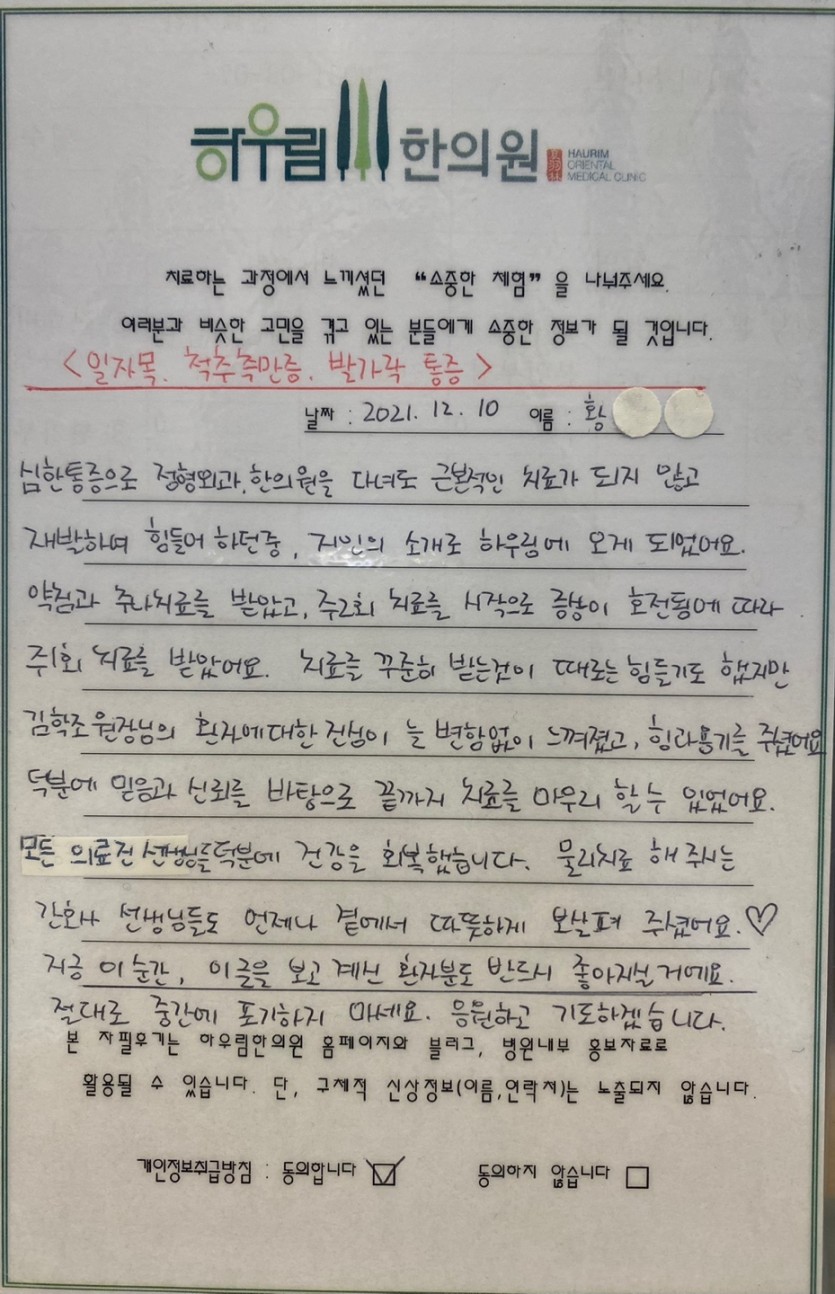 하우림 한의원
HAURIM
ORIENTAL
MEDICAL CLINIC
치료하는 과정에서 느끼셨던 “소중한 체험”을 나눠주세요.
여러분과 비슷한 고민을 겪고 있는 분들에게 소중한 정보가 될 것입니다.
<일자목. 척추측만증. 발가락 통증>
날짜 : 2021. 12. 10 이름 : 황
심한통증으로 정형외과, 한의원을 다녀도 근본적인 치료가 되지 않고
재발하며 힘들어 하던중, 지인의 소개로 하우림에 오게 되었어요.
약침과 추나치료를 받았고, 주2회 치료를 시작으로 증상이 호전됨에 따라
주1회 치료를 받았어요. 치료를 꾸준히 받는것이 때로는 힘들기도 했지만
김학조 원장님의 환자에대한 진심이 늘 변함없이 느껴졌고, 힘과용기를 주셨어요
덕분에 믿음과 신뢰를 바탕으로 끝까지 치료를 마무리 할 수 있었어요.
모든 의료진 선생님들덕분에 건강을 회복했습니다. 물리치료 해 주시는
간호사 선생님들도 언제나 곁에서 따뜻하게 보살펴 주셨어요.♡
지금 이 순간, 이 글을 보고 계신 환자분도 반드시 좋아지실 거에요.
절대로 중간에 포기하지 마세요. 응원하고 기도하겠습니다.
본 자필후기는 하우림한의원 홈페이지와 블러그, 병원내부 홍보자료로
활용될 수 있습니다. 단, 구체적 신상정보(이름,연락처)는 노출되지 않습니다.
개인정보취급방침 : 동의합니다 ☑ 동의하지 않습니다 □